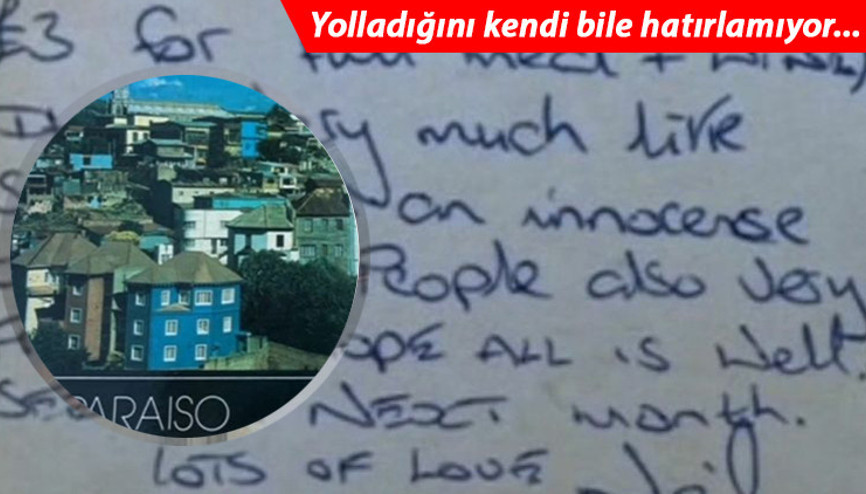 Yolladığını kendi bile hatırlamıyor...
£3 for full meal + wine)
much like
an innocense
People also very
OPE ALL is well.
SEE NEXT month.
LOTS OF LOVE
PARAISO